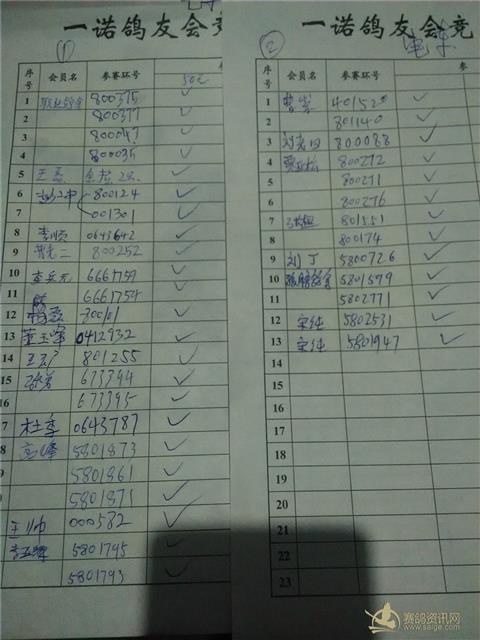 一诺鸽友会竞
(1)
序号 会员名 参赛环号
50元
1 800375
2 800377
3 800047
4 800035
5 王
6 800124
7 001301
8 李顺 0643642
9 曹老二 800252
10 李兵元 6661759
11 6661754
12 30001
13 董玉峰 0412932
14 801255
15 673394
16 673395
7 杜季 0643787
8 高峰 5801873
9 5801861
5801871
王帅 000582
5801795
5801793
一诺鸽友会竞
2
序号 会员名 参赛环号 参
1 曹 401520
2 801140
3 800088
4 800272
5 800271
6 800276
7 801551
8 800174
9 刘丁 5800726
10 5801599
11 5802771
12 宋纯 5802531
13 宋纯 5801947
14
15
16
17
18
19
20
21
22
23
赛鸽资讯网
www.saige.com